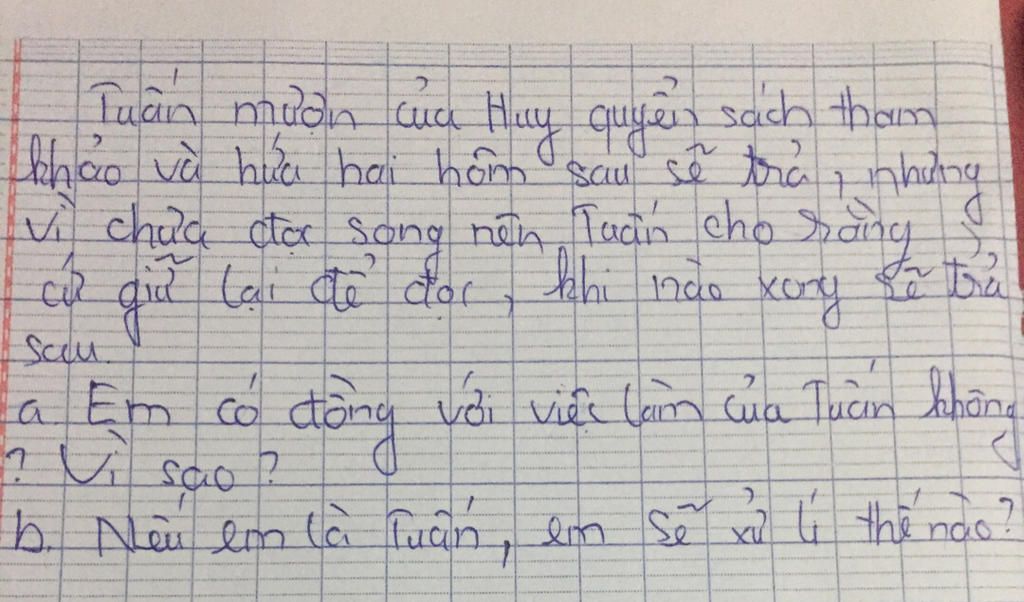 Tuấn mượn của Huy quyển sách tham
khảo và hứa hai hôm sau sẽ trả, nhưng
vì chưa đọc song nên Tuấn cho rằng
cứ giữ lại để đọc, khi nào xong sẽ trả
sau.
a. Em có đồng với việc làm của Tuấn không
? Vì sao?
b. Nếu em là Tuấn, em sẽ xử lí thế nào?